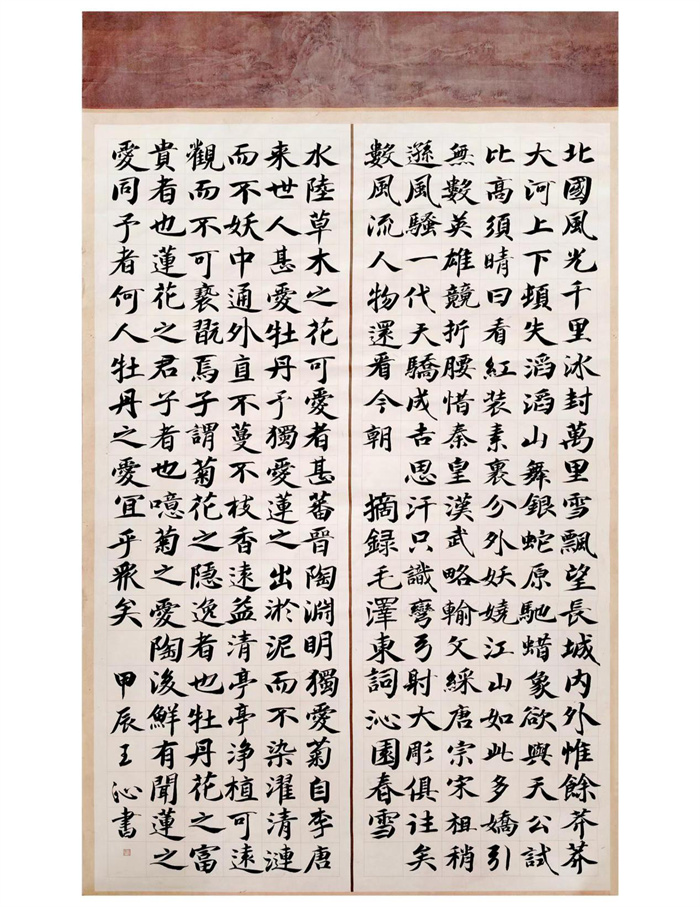 北國風光千里冰封萬里雪飄望長城内外惟餘莽莽
大河上下頓失滔滔山舞銀蛇原馳蜡象欲與天公試
比高須晴日看紅装素裹分外妖嬈江山如此多嬌引
無數英雄競折腰惜秦皇漢武略輸文綵唐宗宋祖稍
遜風騷一代天驕成吉思汗只識彎弓射大彫俱往矣
數風流人物還看今朝 摘録毛澤東詞沁園春雪
水陸草木之花可愛者甚蕃晉陶淵明獨愛菊自李唐
来世人甚愛牡丹予獨愛蓮之出淤泥而不染濯清漣
而不妖中通外直不蔓不枝香遠益清亭亭净植可遠
觀而不可褻翫焉予謂菊花之隱逸者也牡丹花之富
貴者也蓮花之君子者也噫菊之愛陶後鮮有聞蓮之
愛同予者何人牡丹之愛宜乎衆矣 甲辰王沁書